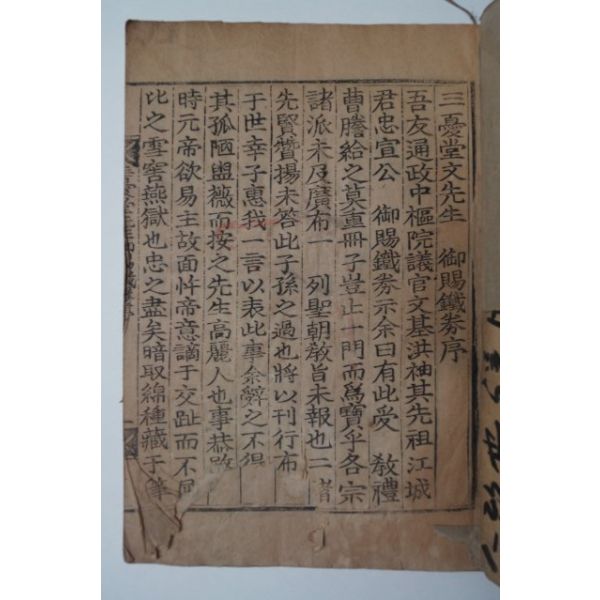 三憂堂文先生 御賜鐵券序
吾友通政中樞院議官文基洪袖其先祖江城
君忠宣公 御賜鐵券示余曰有此爱 敎禮
曹謄給之莫重冊子豈止一門而爲寶乎各宗
諸派未及廣布一 列聖朝敎旨未報也二
先賢贊揚未答此子孫之過也將以刊行布
于世幸子惠我一言以表此事余辤之不得
其孤陋盥薇而按之先生高麗人也事恭
時元帝欲易主故面忤帝意謫于交趾而不
比之雪窖燕獄也忠之盡矣暗取綿種藏于筆